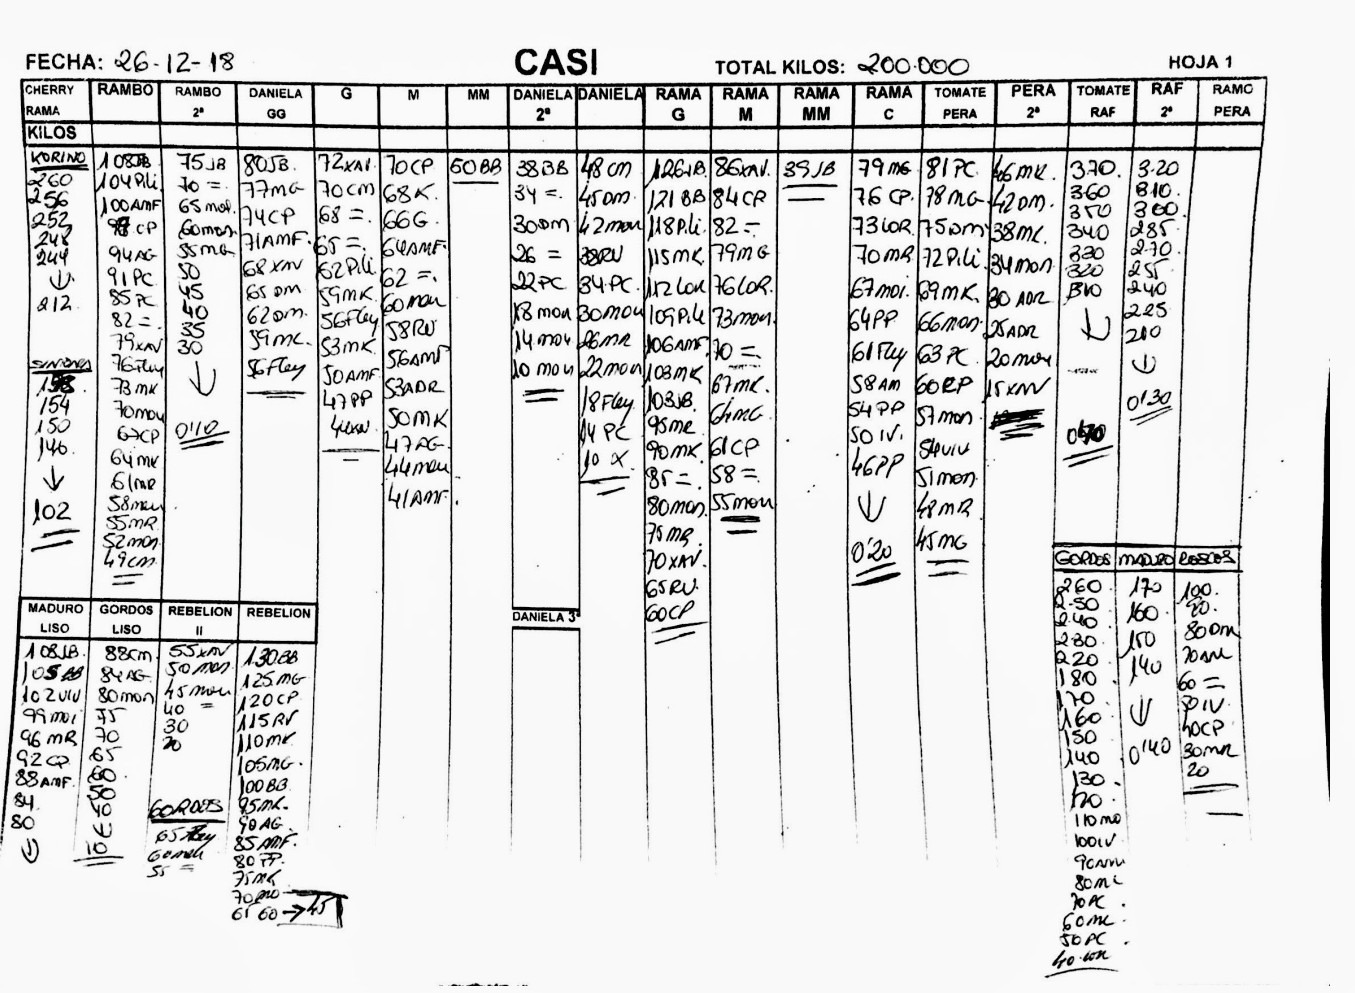 FECHA: 26-12-18 CASI TOTAL KILOS: 200.000 HOJA 1
CHERRY RAMA RAMBO RAMBO 2ª DANIELA GG G M MM DANIELA 2ª DANIELA RAMA G RAMA M RAMA MM RAMA C TOMATE PERA PERA 2ª TOMATE RAF RAF 2ª RAMO PERA
KILOS
KORINO
260
256
252
248
244
↓
212
154
150
146
↓
102
108JB
104Pili
100AMF
94AG
91PC
85PC
82=
79XAV
76Fley
73MK
70mon
67CP
64MK
61MR
58mon
55MR
52mon
49cm
75JB
70=
65mon
60mon
55MG
50
45
40
35
30
↓
0'10
80JB
77MG
74CP
71AMF
68XAV
65DM
62DM
59MK
56Fley
72XAV
70CM
68=
65=
62Pili
59MK
56Fley
53MK
50AMF
47PP
70CP
68K
66G
64AMF
62=
60mon
58RV
56AMF
53ADR
50MK
47AG
44mon
41AMF
60BB
38BB
34=
30DM
26=
22PC
18mon
14mon
10mon
DANIELA 3ª
48CM
45DM
42mon
34PC
30mon
26MR
22mon
18Fley
14PC
10X
126JB
121BB
118Pili
115MK
112LOR
109Pili
106AMF
103MK
103JB
95MR
90MK
85=
80mon
75MR
70XAV
65RV
60CP
86XAV
84CP
82=
79MG
76LOR
73mon
70=
67MK
64MG
61CP
58=
55mon
39JB
79MG
76CP
73LOR
70MR
67moi
64PP
61Fley
58AM
54PP
50IV
46PP
↓
0'20
81PC
78MG
75DM
72Pili
69MK
66mon
63PC
60RP
57mon
54VIV
51mon
48MR
45MG
46MK
42DM
38MK
34mon
30ADR
25ADR
20mon
15XAV
370
360
350
340
330
320
310
↓
3.20
310
300
285
270
255
240
225
210
↓
0'30
MADURO LISO GORDOS LISO REBELION II REBELION
108JB
105BB
102VIV
99moi
96MR
92CP
88AMF
84
80
↓
88cm
84AG
80mon
75
70
65
60
50
40
↓
10
55XAV
50mon
45mon
40=
30
20
GORDOS
65Fley
60mon
55=
130BB
125MG
120CP
115RV
110MK
105MG
100BB
95MK
90AG
85AMF
80PP
75MK
70mo
65 60→45
GORDOS MADURO ROSCOS
260
250
240
230
220
180
170
160
150
140
130
120
110mo
100IV
80MK
70PC
60MK
50PC
40LOR
170
160
150
140
↓
0'40
100
90
80DM
60=
50IV
40CP
30MR
20